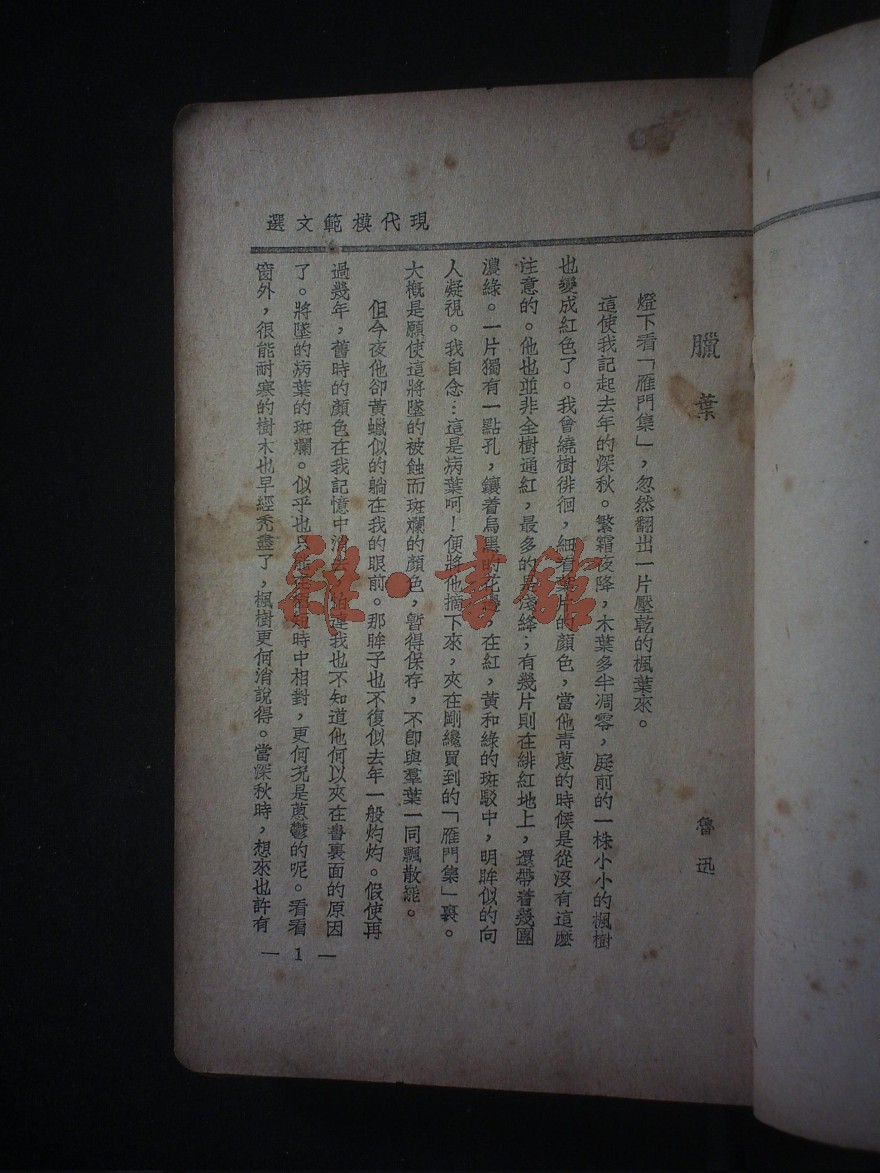 現代模範文選
臘葉
魯迅
燈下看「雁門集」，忽然翻出一片壓乾的楓葉來。
這使我記起去年的深秋。繁霜夜降，木葉多半凋零，庭前的一株小小的楓樹
也變成紅色了。我曾繞樹徘徊，細看葉片的顏色，當他靑蔥的時候是從沒有這麽
注意的。他也並非全樹通紅，最多的是淺絳；有幾片則在緋紅地上，還帶着幾團
濃綠。一片獨有一點孔，鑲着烏黑的花邊，在紅，黃和綠的斑駁中，明眸似的向
人凝視。我自念…這是病葉呵！便將他摘下來，夾在剛纔買到的「雁門集」裏。
大槪是願使這將墜的被蝕而斑斕的顏色，暫得保存，不卽與羣葉一同飄散罷。
但今夜他卻黃蠟似的躺在我的眼前。那眸子也不復似去年一般灼灼。假使再
過幾年，舊時的顏色在我記憶中消去，怕連我也不知道他何以夾在書裏面的原因
了。將墜的病葉的斑斕。似乎也只能 短時中相對，更何況是蔥鬱的呢。看看
窗外，很能耐寒的樹木也早經禿盡了，楓樹更何消說得。當深秋時，想來也許有
— 1 —
雜·書館